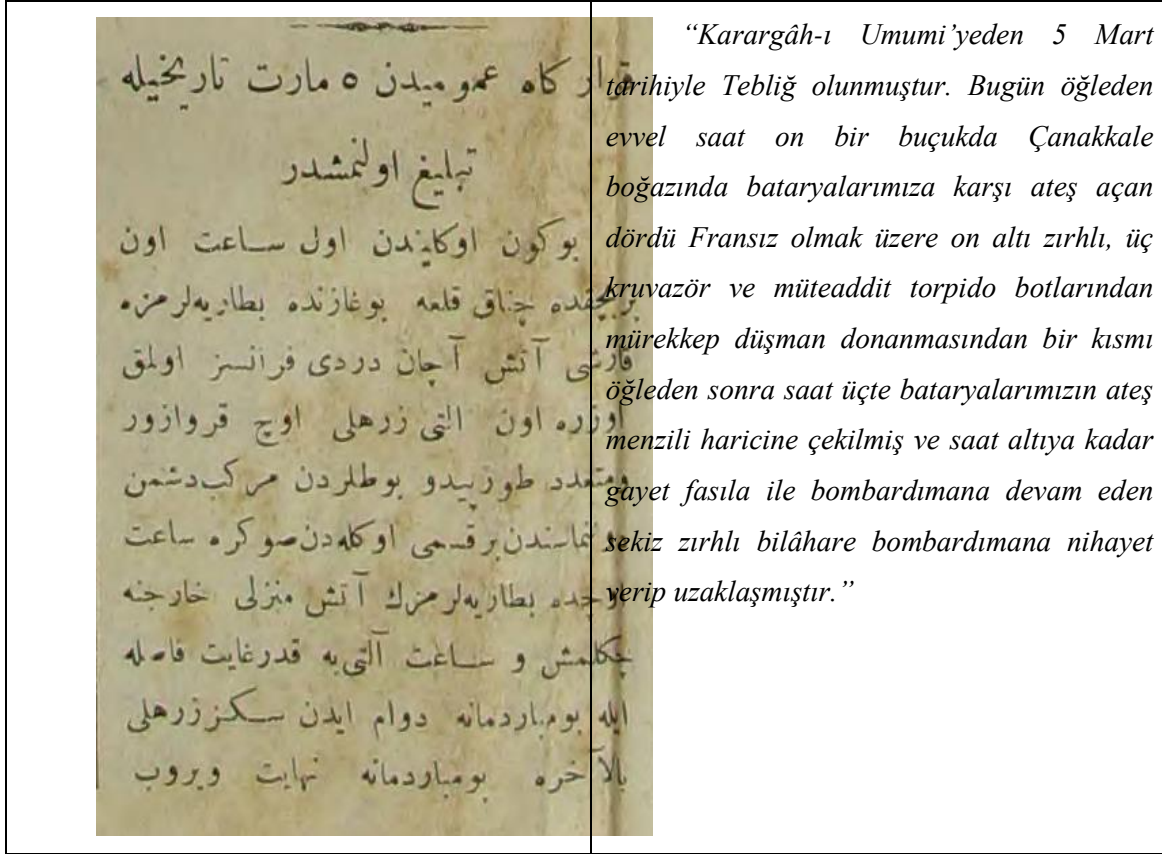 قرارکاه عمومیدن ٥ مارت تاریخیله
تبلیغ اولنمشدر
بوکون اوکلیندن اول ساعت اون
بربچقده چناق قلعه بوغازنده بطاریه‌لرمزه
قارشی آتش آچان دردی فرانسز اولمق
اوزره اون التی زرهلی اوچ قروازور
ومتعدد طورپیدو بوطلردن مرکب دشمن
دونماسندن بر قسمی اوکله‌دن صوکره ساعت
اوچده بطاریه‌لرمزك آتش منزلی خارجنه
چکلمش و ساعت آلتی‌یه قدر غایت فاصله
ایله بومباردمانه دوام ایدن سکز زرهلی
بالآخره بومباردمانه نهایت ویروب
“Karargâh-ı Umumi’yeden 5 Mart
tarihiyle Tebliğ olunmuştur. Bugün öğleden
evvel saat on bir buçukda Çanakkale
boğazında bataryalarımıza karşı ateş açan
dördü Fransız olmak üzere on altı zırhlı, üç
kruvazör ve müteaddit torpido botlarından
mürekkep düşman donanmasından bir kısmı
öğleden sonra saat üçte bataryalarımızın ateş
menzili haricine çekilmiş ve saat altıya kadar
gayet fasıla ile bombardımana devam eden
sekiz zırhlı bilâhare bombardımana nihayet
verip uzaklaşmıştır.”